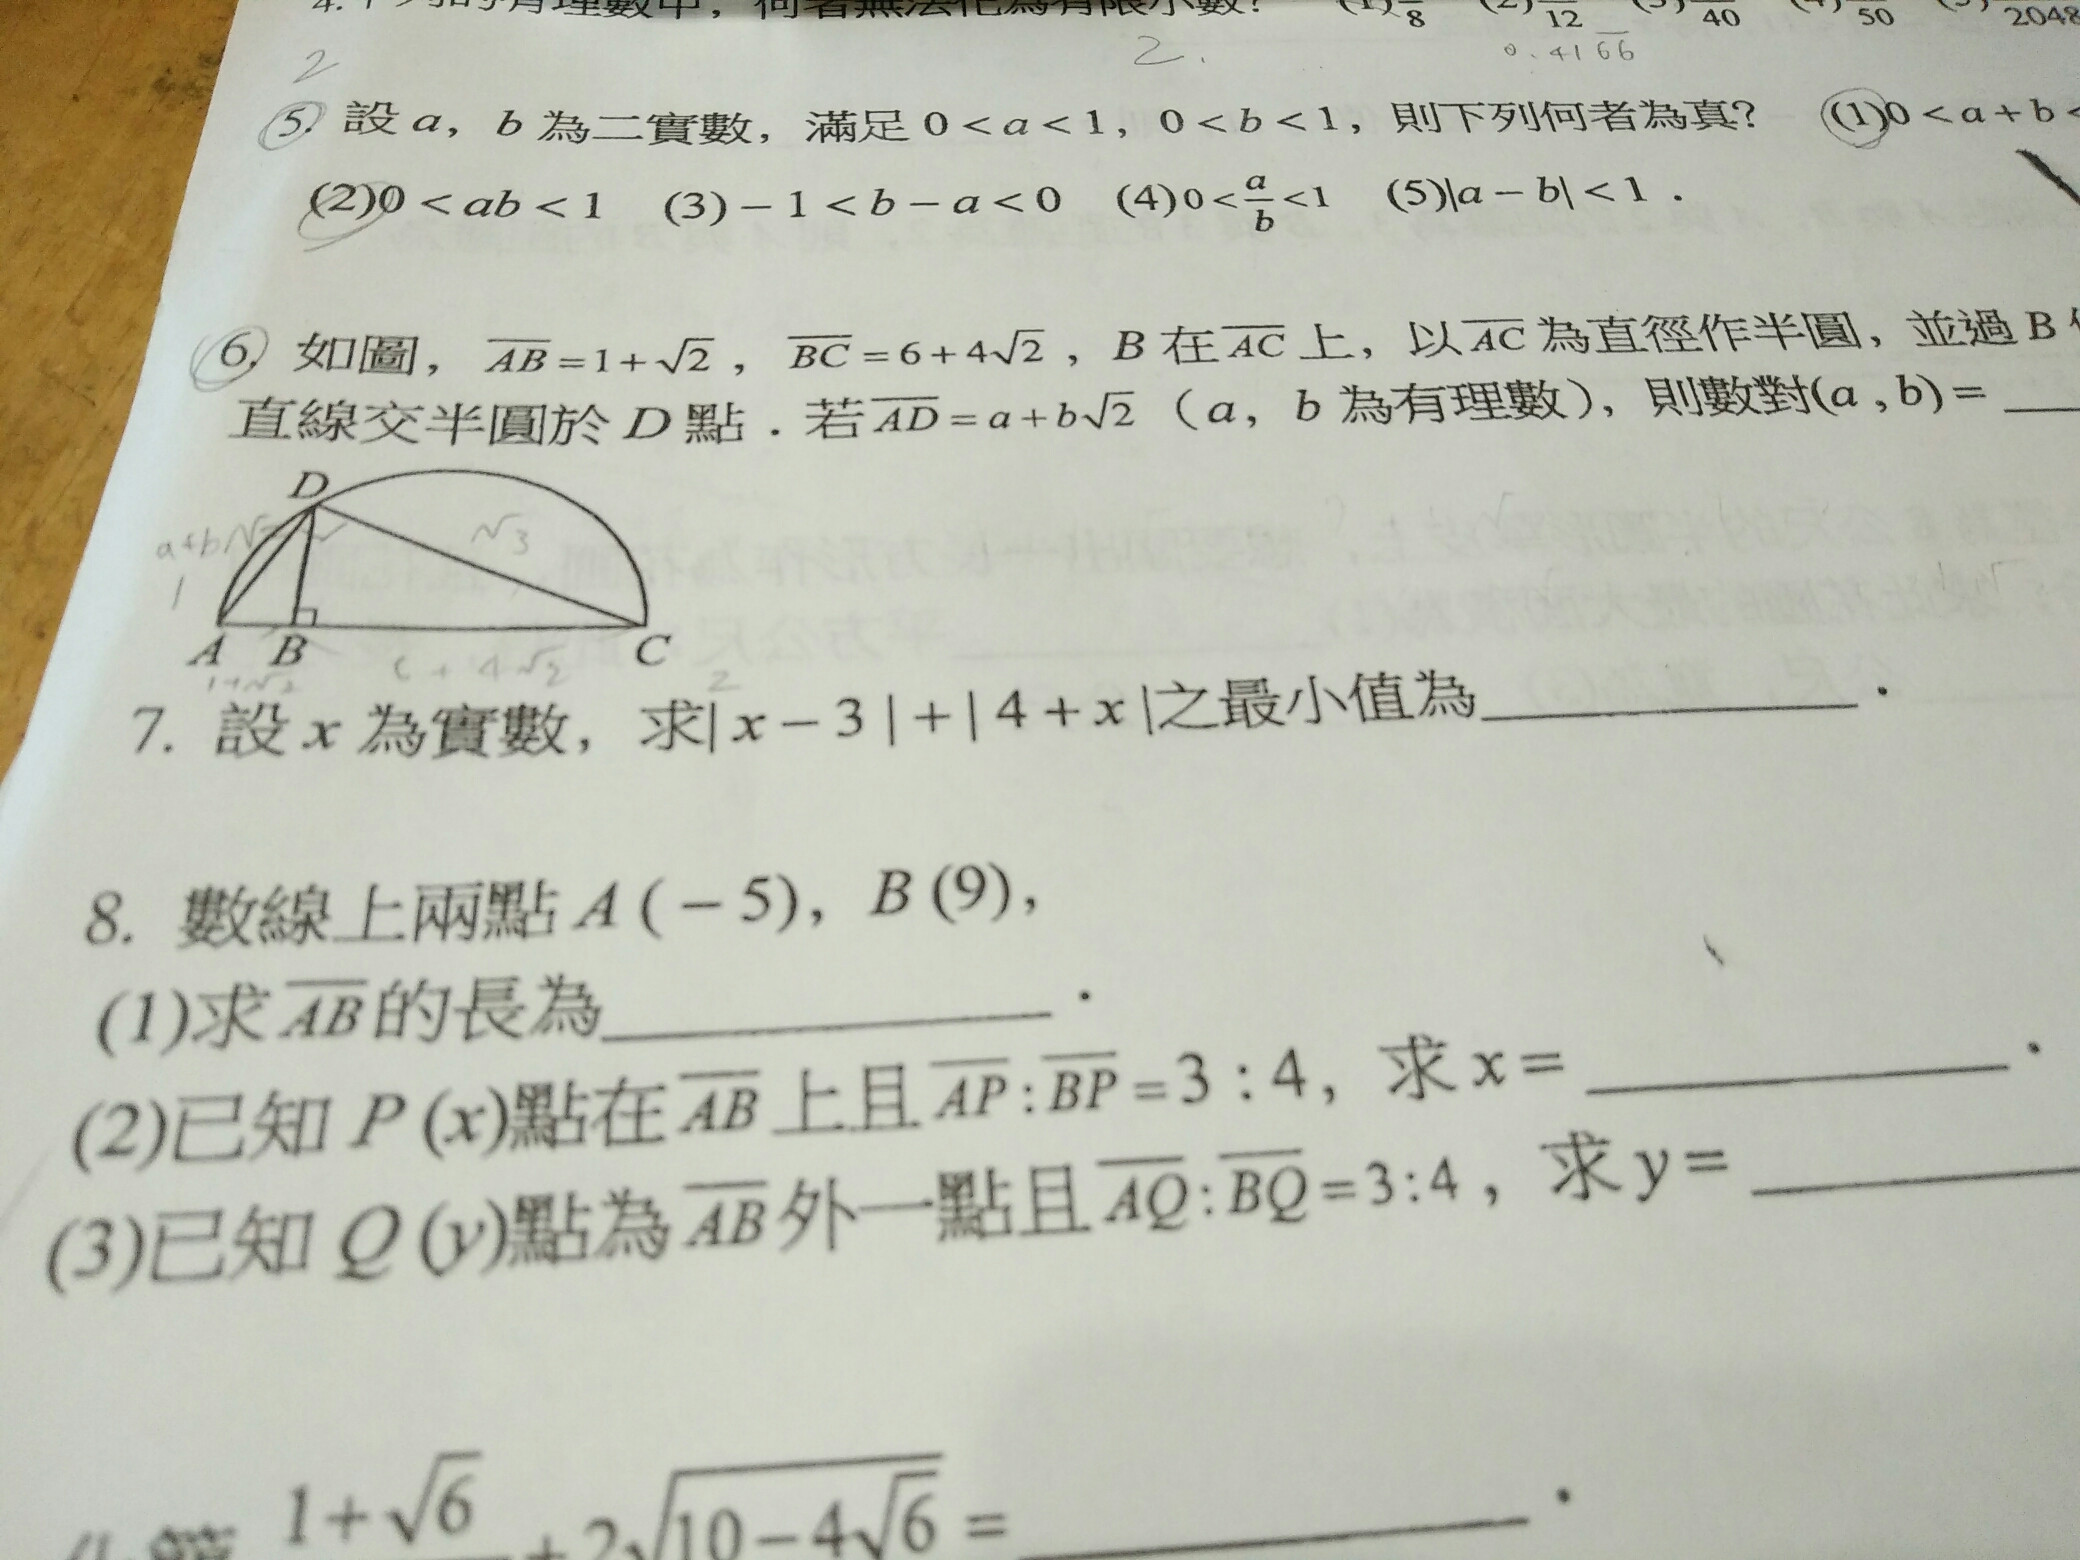 4. 下列的有理數中，何者無法化為有限小數？ (1) 8 (2) 12 (3) 40 (4) 50 (5) 2048
2 2. 0.4166
5. 設 a，b 為二實數，滿足 0<a<1，0<b<1，則下列何者為真? (1)0<a+b<
(2)0<ab<1 (3)−1<b−a<0 (4)0<a/b<1 (5)|a−b|<1．
6. 如圖，AB=1+√2，BC=6+4√2，B 在 AC 上，以 AC 為直徑作半圓，並過 B
直線交半圓於 D 點．若 AD=a+b√2（a，b 為有理數），則數對(a,b)=
D
a+b√2 √3
1
A B C
1+√2 6+4√2 2
7. 設 x 為實數，求|x−3|+|4+x|之最小值為______．
8. 數線上兩點 A(−5)，B(9)，
(1)求 AB 的長為______．
(2)已知 P(x)點在 AB 上且 AP:BP=3:4，求 x=______．
(3)已知 Q(y)點為 AB 外一點且 AQ:BQ=3:4，求 y=______
1+√6 +2√(10−4√6) =______．